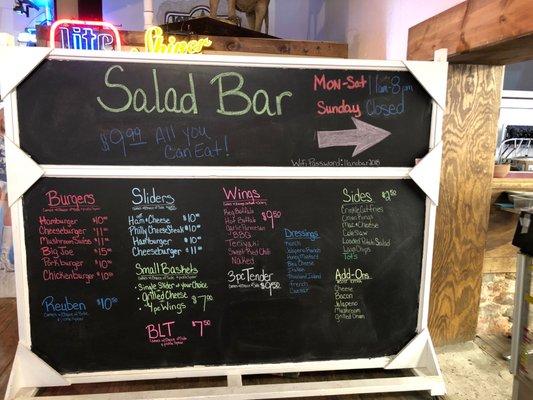 Lite
Shiner
Salad Bar
$9.99 All You
Can Eat!
Mon-Sat 11am-8pm
Sunday Closed
Wifi Password: llanobar2018
Burgers
Hamburger $10
Cheeseburger $11
Mushroom Swiss $11
Big Joe $15
Porkburger $10
Chickenburger $10
Reuben $10
Sliders
Ham & Cheese $10
Philly Cheese Steak $10
Hamburger $10
Cheeseburger $11
Small Baskets
• Single Slider of your Choice
• Grilled Cheese $7
• 4pc Wings
BLT $7
Wings
BBQ Buffalo
Hot Buffalo
Garlic Parmesan
BBQ
Teriyaki
Sweet Red Chili
Naked
$9.50
3pc Tender
$9.50
Dressings
French
Jalapeno Ranch
Honey Mustard
Bleu Cheese
Italian
Thousand Island
Sides $2.50
Crinkle Cut Fries
Onion Rings
Mac & Cheese
Cole Slaw
Loaded Potato Salad
Lays Chips
Tots
Add-Ons
Cheese
Bacon
Jalapeno
Mushroom
Grilled Onion